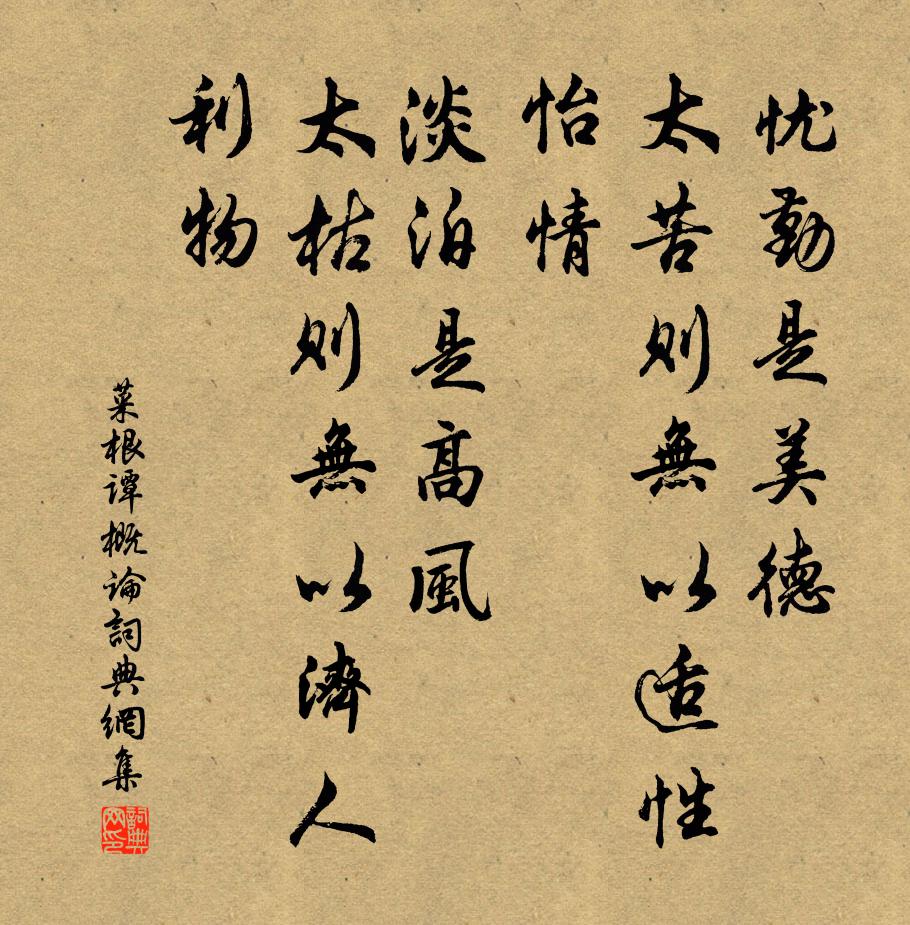 忧勤是美德
太苦则無以适性
怡情
淡泊是高風
太枯则無以濟人
利物
菜根谭概論詞典網集
詞典网印